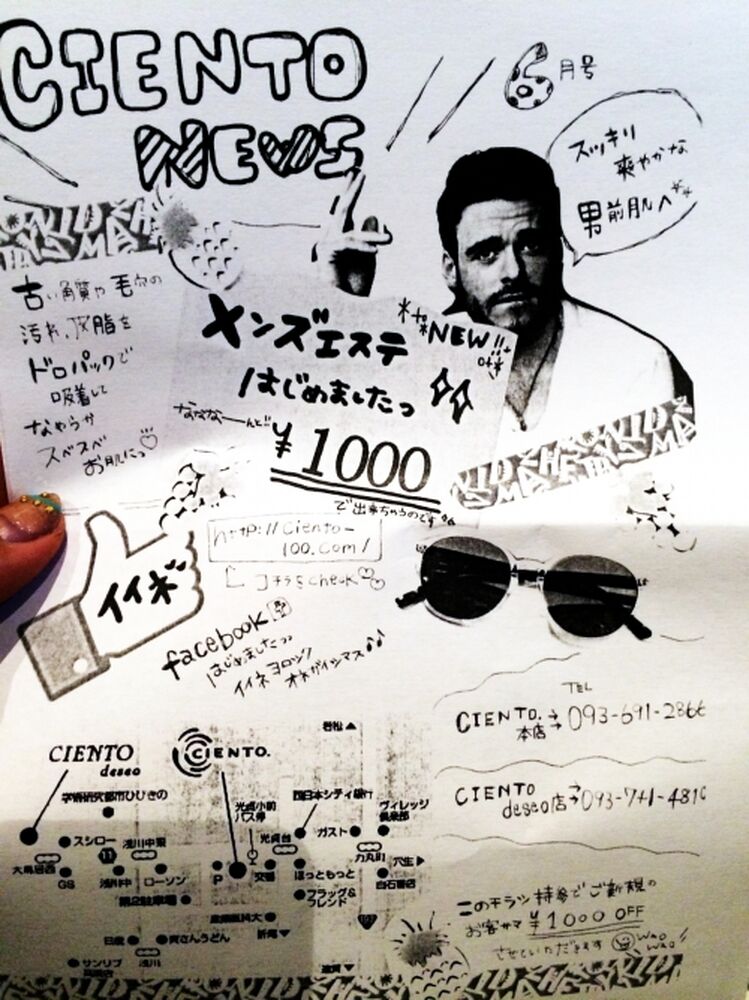 CIENTO
NEWS
6月号
スッキリ
爽やかな
男前肌へ
古い角質や毛穴の
汚れ、皮脂を
ドロパックで
吸着して
なめらか
スベスベ
お肌にっ♡
メンズエステ
NEW!!
はじめましたっ
なななーんと
¥1000
で出来ちゃうのです
http://ciento-
100.com/
コチラをCheck♡♡
イイネ
facebook
はじめましたっっ
イイネヨロシク
オネガイシマス♪♪
TEL
CIENTO. 本店→093-691-2866
CIENTO deseo店→093-741-4810
CIENTO deseo
CIENTO.
若松▲
学術研究都市ひびきの
光貞小前
バス停
西日本シティ銀行
ヴィレッジ
倶楽部
スシロー
浅川中東
光貞台
ガスト
力丸町
穴生▶
大鳥居西
GS
11
浅川中
ローソン
P
交番
ほっともっと
白石書店
第2駐車場
フラッグ&
フレンド
産業医科大
折尾▼
日産
寅さんうどん
サンリブ
浅川
このチラシ持参でご新規の
お客サマ¥1000 OFF
させていただきます
WAO
WAO!!